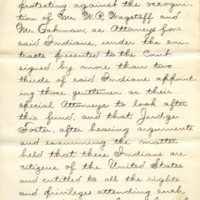 protesting against the recogni-
tion of Mr. W. R. Wagstaff and
Mr. Oshman as Attorneys for
said Indians, under the con-
tracts presented to the Court
signed by more than two
thirds of said Indians appoint-
ing those gentlemen as their
special Attorneys to look after
this fund, and that Judge
Foster, after hearing arguments
and examining the matter
held that these Indians are
citizens of the United States
and entitled to all the rights
and privileges attending such